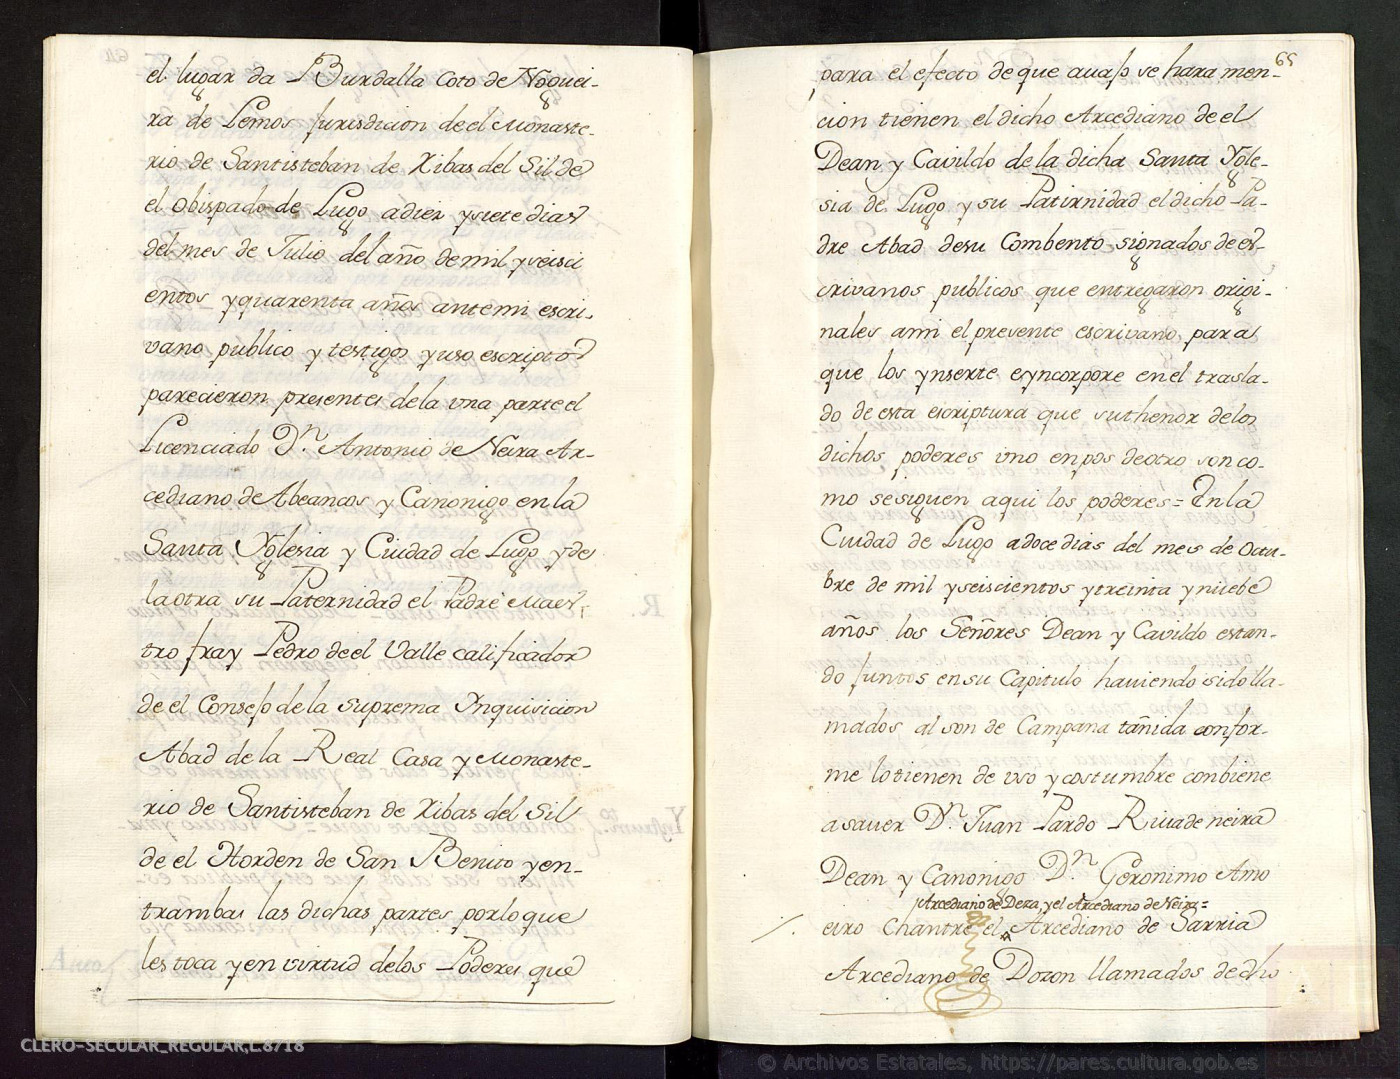 el lugar da Burdalla Coto de Noguei-
ra de Lemos Jurisdicion de el Monaste-
rio de Santisteban de Ribas del Sil de
el Obispado de Lugo a diez y siete dias
del mes de Julio del año de mil y seisci
entos y quarenta años ante mi escri-
vano publico y testigos yuso escriptos
parecieron presentes de la una parte el
Licenciado Dn. Antonio de Neira Ar-
cediano de Abeancos y Canonigo en la
Santa Yglesia y Ciudad de Lugo y de
la otra su Paternidad el Padre Maes-
tro fray Pedro de el Valle calificador
de el Consejo de la Suprema Ynquisicion
Abad de la Real Casa y Monaste-
rio de Santisteban de Ribas del Sil
de el Horden de San Benito y en-
trambas las dichas partes por lo que
les toca y en virtud de los Poderes que
65
para el efecto de que avajo se hara men-
cion tienen el dicho Arcediano de el
Dean y Cavildo de la dicha Santa Ygle-
sia de Lugo y su Patirnidad el dicho Pa-
dre Abad de su Combento signados de es-
crivanos publicos que entregaron origi-
nales a mi el presente escrivano para
que los ynserte e yncorpore en el trasla-
do de esta escriptura que su thenor de los
dichos poderes uno en pos de otro son co-
mo se siguen aqui los poderes = En la
Ciudad de Lugo a doce dias del mes de Octu-
bre de mil y seiscientos y treinta y nuebe
años los Señores Dean y Cavildo estan-
do Juntos en su Capitulo haviendo sido lla-
mados al son de Campana tañida confor-
me lo tienen de uso y costumbre conbiene
a saver Dn. Juan Pardo Rivadeneira
Dean y Canonigo Dn Geronimo Amo
y Arcediano de Deza, y el Arcediano de Neira=
eiro Chantre el Arcediano de Sarria
Arcediano de Dozon llamados de dho
CLERO-SECULAR_REGULAR,L.8718
© Archivos Estatales, https://pares.cultura.gob.es